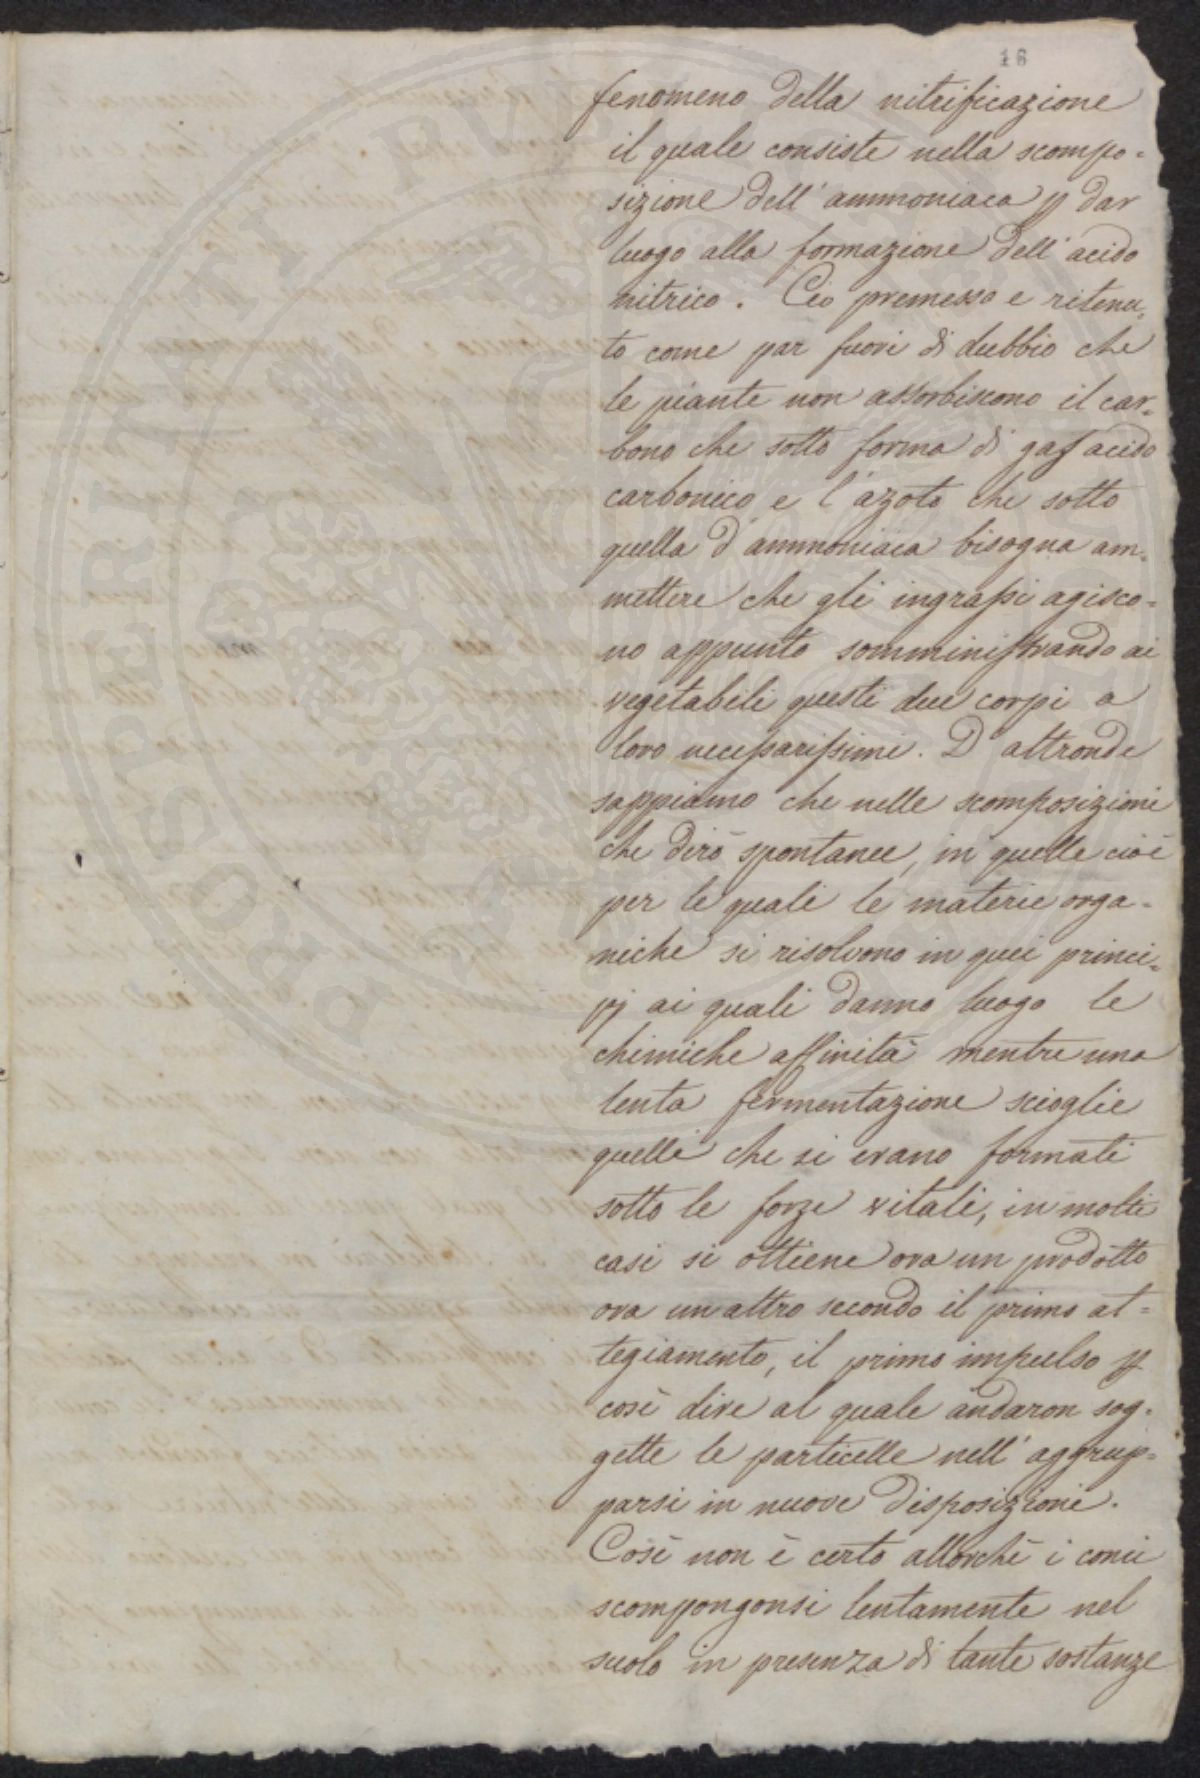 16
fenomeno della nitrificazione
il quale consiste nella scompo=
sizione dell'ammoniaca p dar
luogo alla formazione dell'acido
nitrico. Ciò premesso e ritenu=
to come par fuori di dubbio che
le piante non assorbiscono il car=
bono che sotto forma di gas acido
carbonico e l'azoto che sotto
quella d'ammoniaca bisogna am=
mettere che gli ingrassi agisco=
no appunto somministrando ai
vegetabili questi due corpi a
loro necessarissimi. D'altronde
sappiamo che nelle scomposizioni
che dirò spontanee, in quelle cioè
per le quali le materie orga=
niche si risolvono in quei princi=
pj ai quali danno luogo le
chimiche affinità mentre una
lenta fermentazione scioglie
quelli che si erano formati
sotto le forze vitali, in molti
casi si ottiene ora un prodotto
ora un altro secondo il primo at=
tegiamento, il primo impulso p
così dire al quale andaron sog=
gette le particelle nell'aggrup=
parsi in nuove disposizioni.
Così non è certo allorchè i conci
scompongonsi lentamente nel
suolo in presenza di tante sostanze
PROSPERITATI PVBLICAE